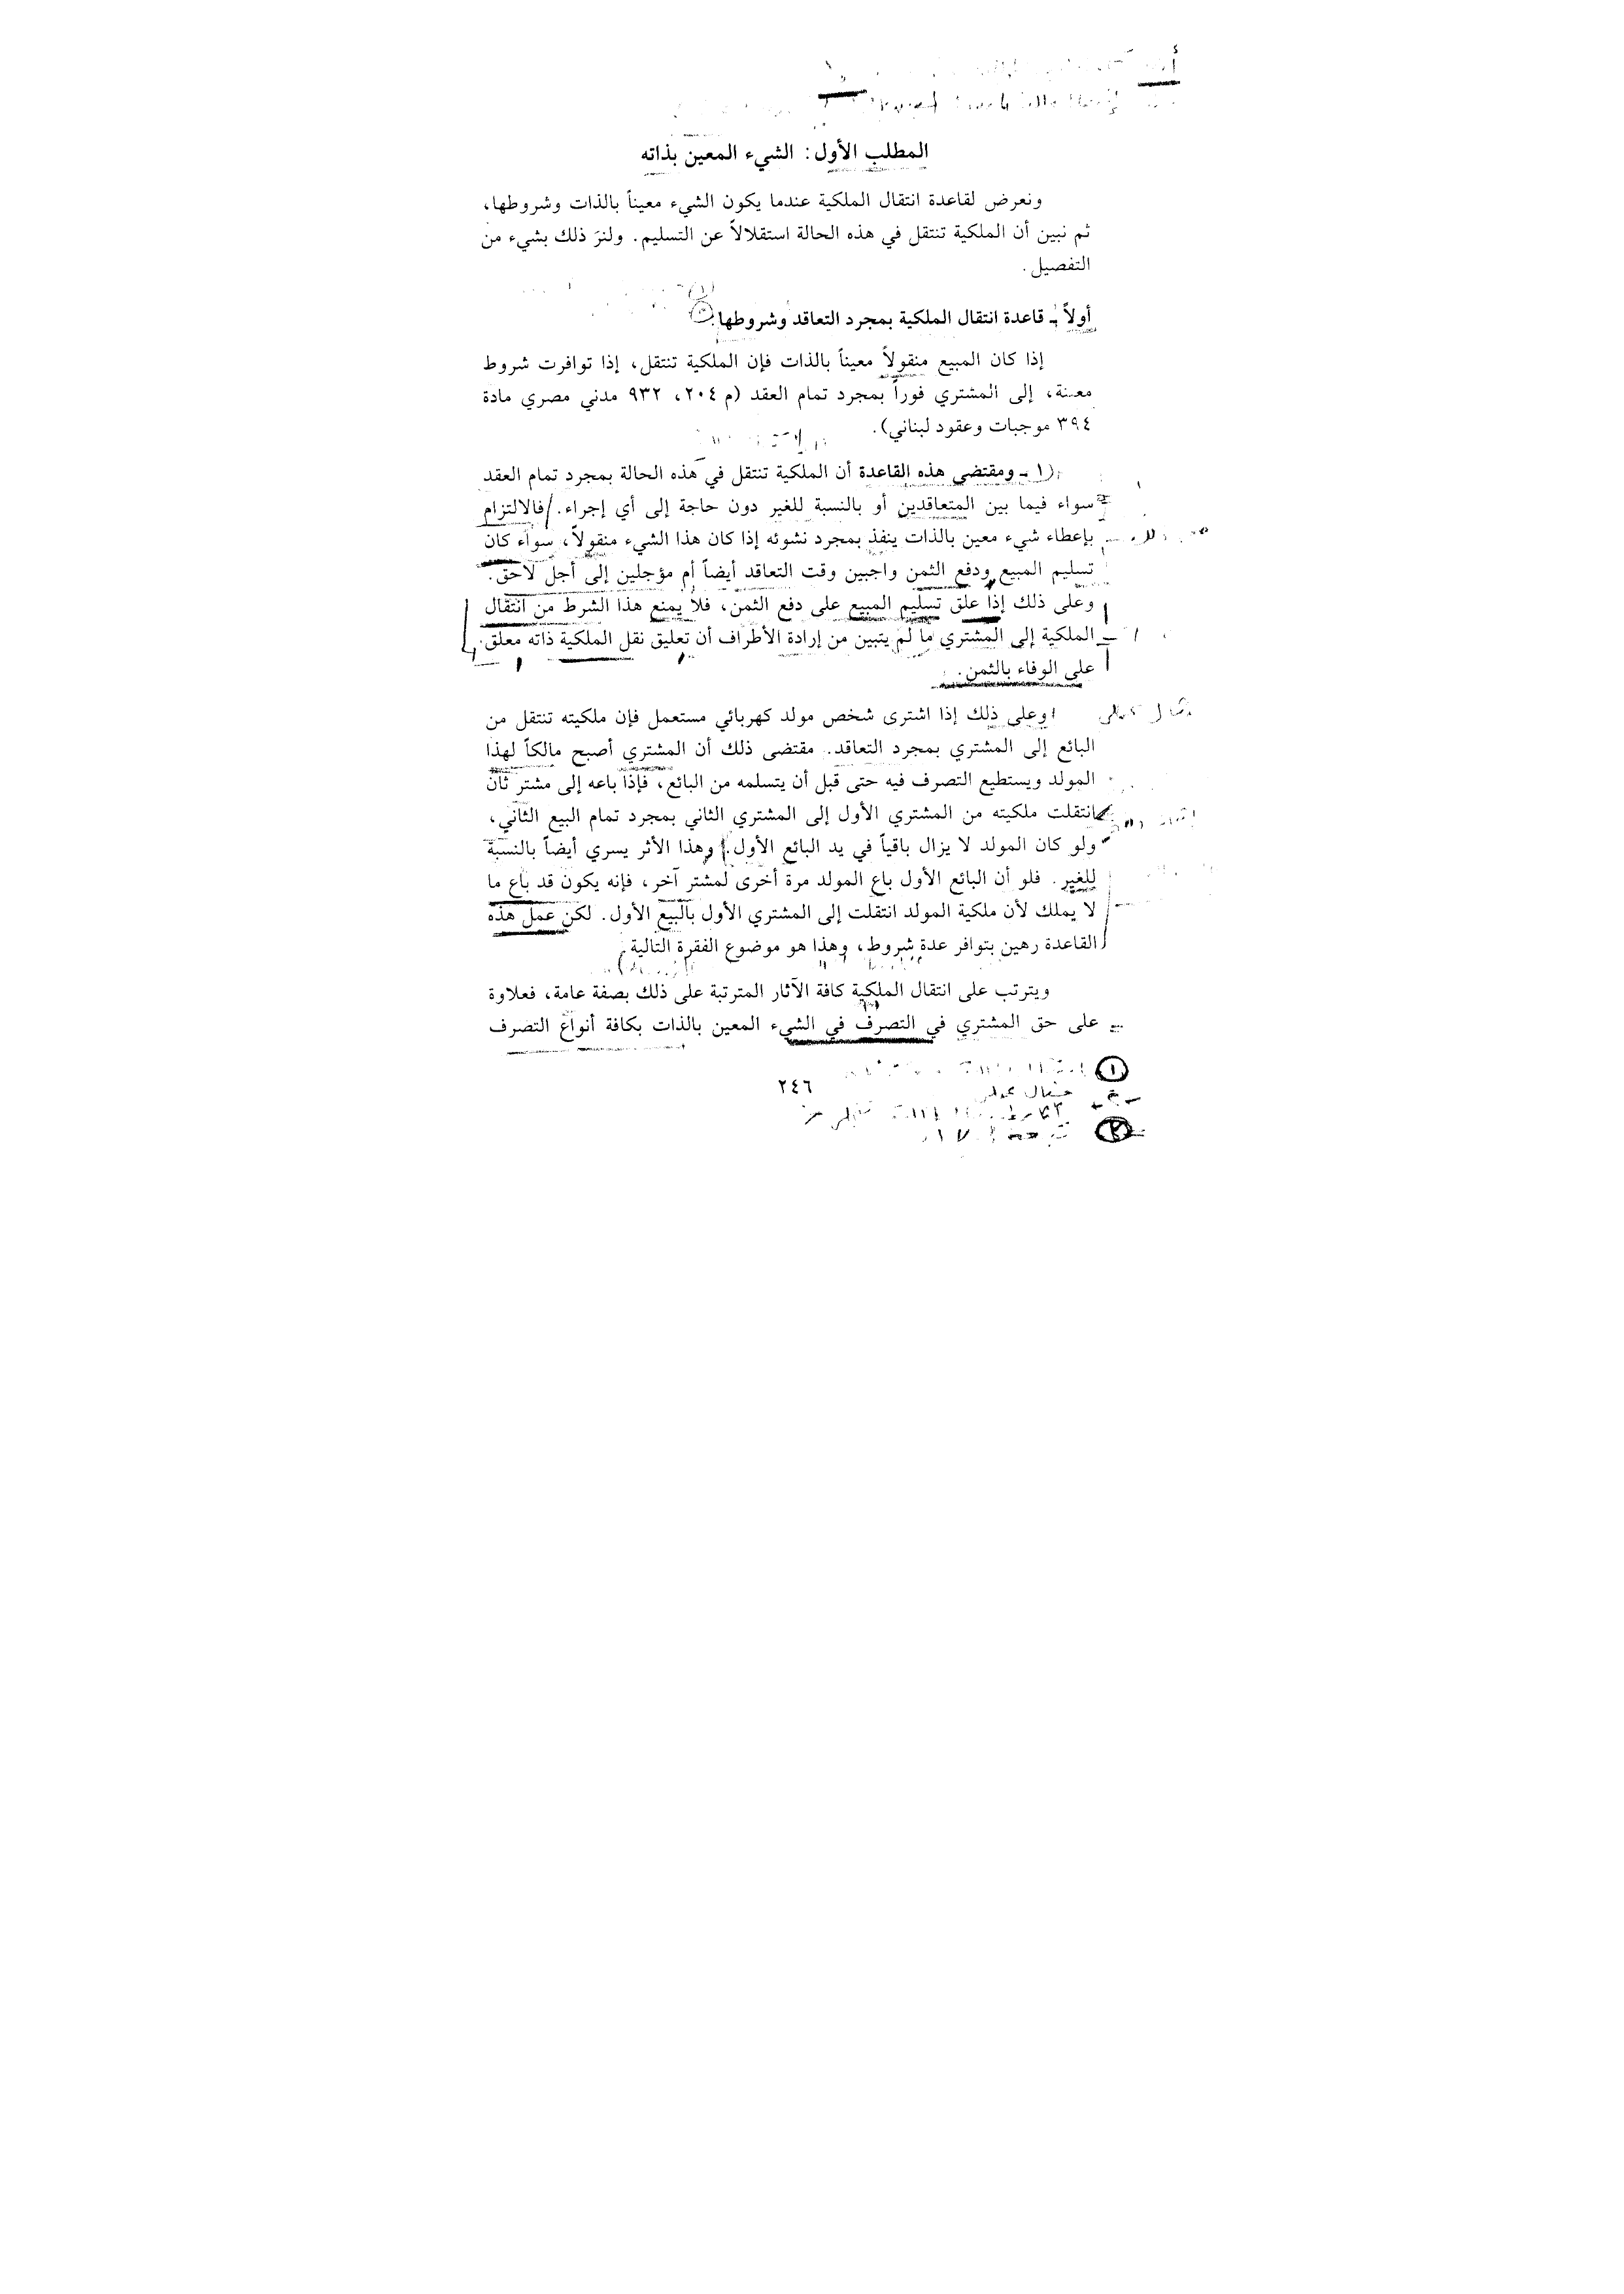 المطلب الأول: الشيء المعين بذاته
ونعرض لقاعدة انتقال الملكية عندما يكون الشيء معيناً بالذات وشروطها،
ثم نبين أن الملكية تنتقل في هذه الحالة استقلالاً عن التسليم. ولنرَ ذلك بشيء من
التفصيل.
أولاً ـ قاعدة انتقال الملكية بمجرد التعاقد وشروطها
إذا كان المبيع منقولاً معيناً بالذات فإن الملكية تنتقل، إذا توافرت شروط
معينة، إلى المشتري فوراً بمجرد تمام العقد (م ٢٠٤، ٩٣٢ مدني مصري مادة
٣٩٤ موجبات وعقود لبناني).
١ ـ ومقتضى هذه القاعدة أن الملكية تنتقل في هذه الحالة بمجرد تمام العقد
سواء فيما بين المتعاقدين أو بالنسبة للغير دون حاجة إلى أي إجراء. فالالتزام
بإعطاء شيء معين بالذات ينفذ بمجرد نشوئه إذا كان هذا الشيء منقولاً، سواء كان
تسليم المبيع ودفع الثمن واجبين وقت التعاقد أيضاً أم مؤجلين إلى أجل لاحق.
وعلى ذلك إذا علق تسليم المبيع على دفع الثمن، فلا يمنع هذا الشرط من انتقال
الملكية إلى المشتري ما لم يتبين من إرادة الأطراف أن تعليق نقل الملكية ذاته معلق
على الوفاء بالثمن.
وعلى ذلك إذا اشترى شخص مولد كهربائي مستعمل فإن ملكيته تنتقل من
البائع إلى المشتري بمجرد التعاقد. مقتضى ذلك أن المشتري أصبح مالكاً لهذا
المولد ويستطيع التصرف فيه حتى قبل أن يتسلمه من البائع، فإذا باعه إلى مشتر ثان
انتقلت ملكيته من المشتري الأول إلى المشتري الثاني بمجرد تمام البيع الثاني،
ولو كان المولد لا يزال باقياً في يد البائع الأول. وهذا الأثر يسري أيضاً بالنسبة
للغير. فلو أن البائع الأول باع المولد مرة أخرى لمشتر آخر، فإنه يكون قد باع ما
لا يملك لأن ملكية المولد انتقلت إلى المشتري الأول بالبيع الأول. لكن عمل هذه
القاعدة رهين بتوافر عدة شروط، وهذا هو موضوع الفقرة التالية.
ويترتب على انتقال الملكية كافة الآثار المترتبة على ذلك بصفة عامة، فعلاوة
على حق المشتري في التصرف في الشيء المعين بالذات بكافة أنواع التصرف
١
٢٤٦
٢